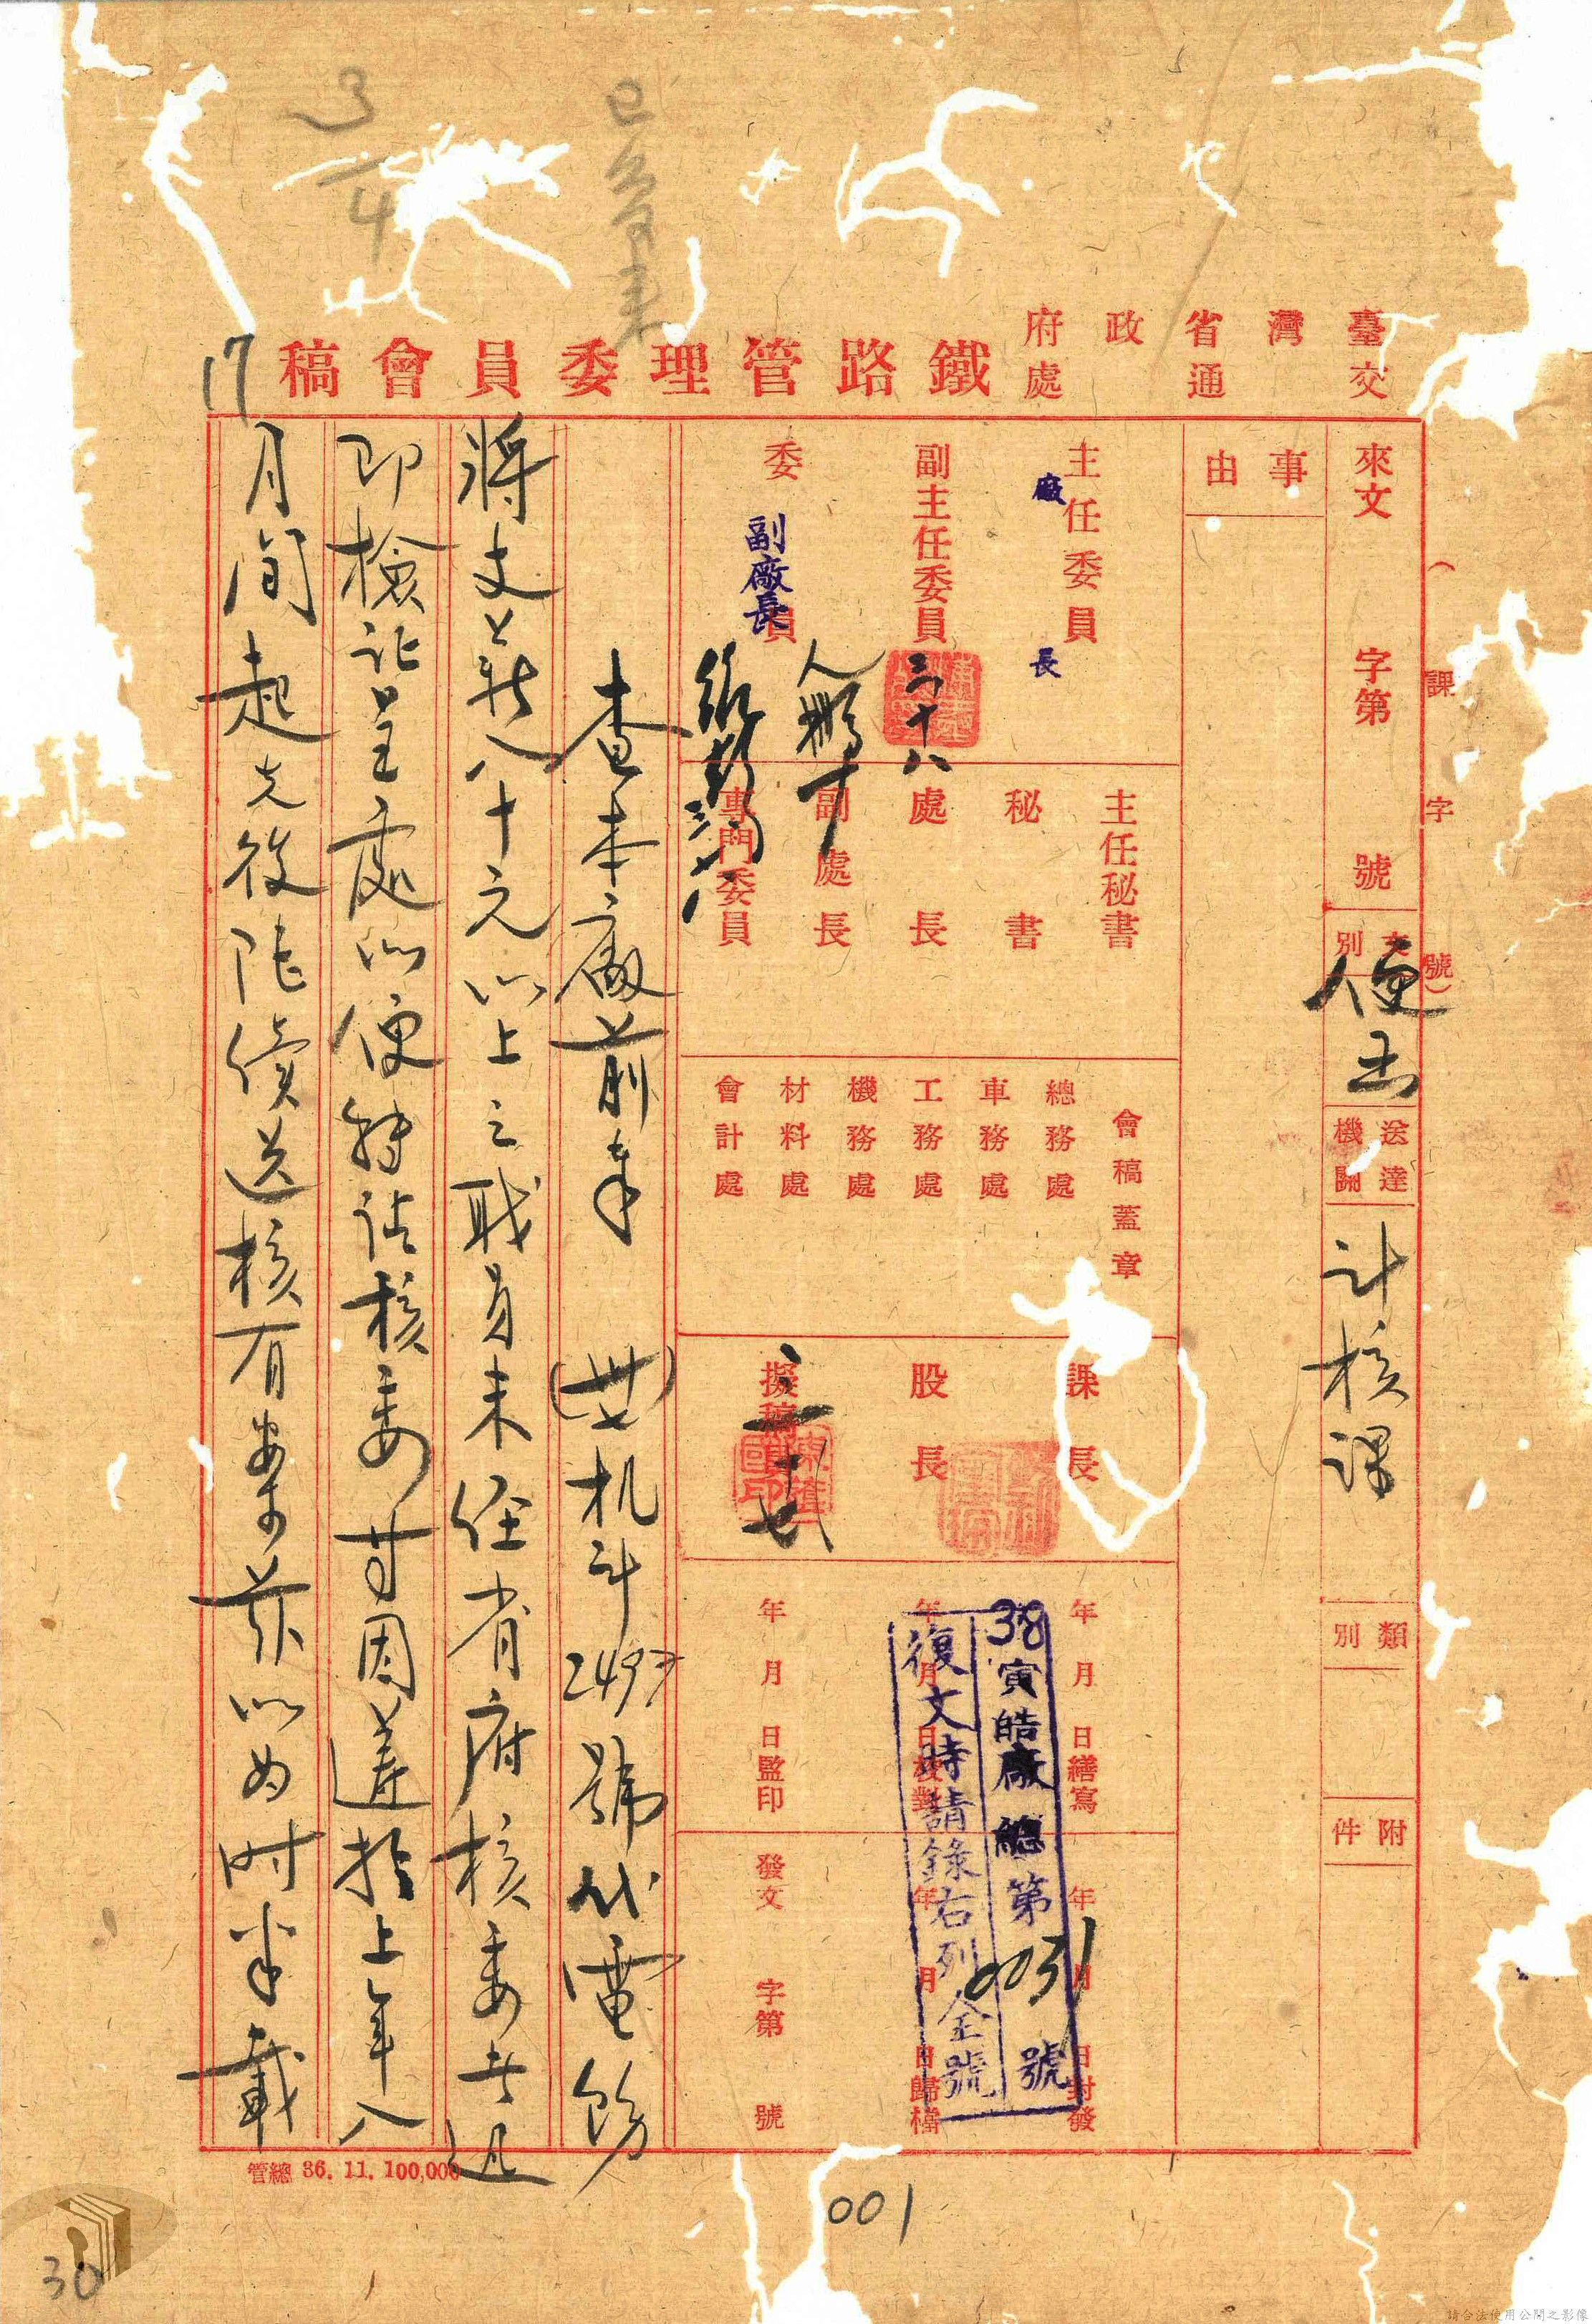 3/4
臺灣省政府
交通處
鐵路管理委員會稿
17
（ 課 字 號）
來文 字第 號
文別
便函
送達機關
計核課
類別
附件
事由
主任委員
廠長
副主任委員
三十八
委員
副廠長
主任秘書
秘書
處長
副處長
專門委員
會稿蓋章
總務處
車務處
工務處
機務處
材料處
會計處
課長
股長
擬稿員
年 月 日繕寫
年 月 日校對
年 月 日監印
年 月 日封發
年 月 日歸檔
發文 字第 號
38寅皓廠總第0031號
復文時請錄右列全號
查本廠前奉 (卅七)机計2497號代電飭
將支薪八十元以上之職員未經省府核委者迅
即檢証呈處以便轉請核委等因遵於上年八
月間起先後陸續送核有案茲以為時半載
管總 36. 11. 100,000
001
30
請合法使用公開之影像